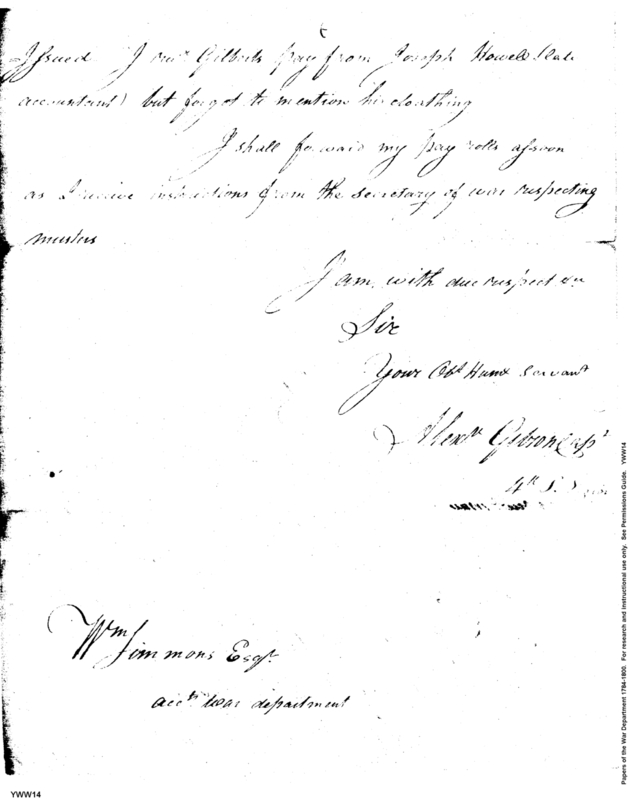 Issued I recd Gilberts pay from Joseph Howell (late
accountant) but forgot to mention his cloathing
I shall forward my pay rolls assoon
as I receive instructions from the secretary of war respecting
musters
I am with due respect &c
Sir
Your Obt Humе Servant
Alexr Gibson Capt
4th S. L.
Wm Simmons Esqr.
acct war department
YWW14
Papers of the War Department 1784-1800. For research and instructional use only. See Permissions Guide. YWW14